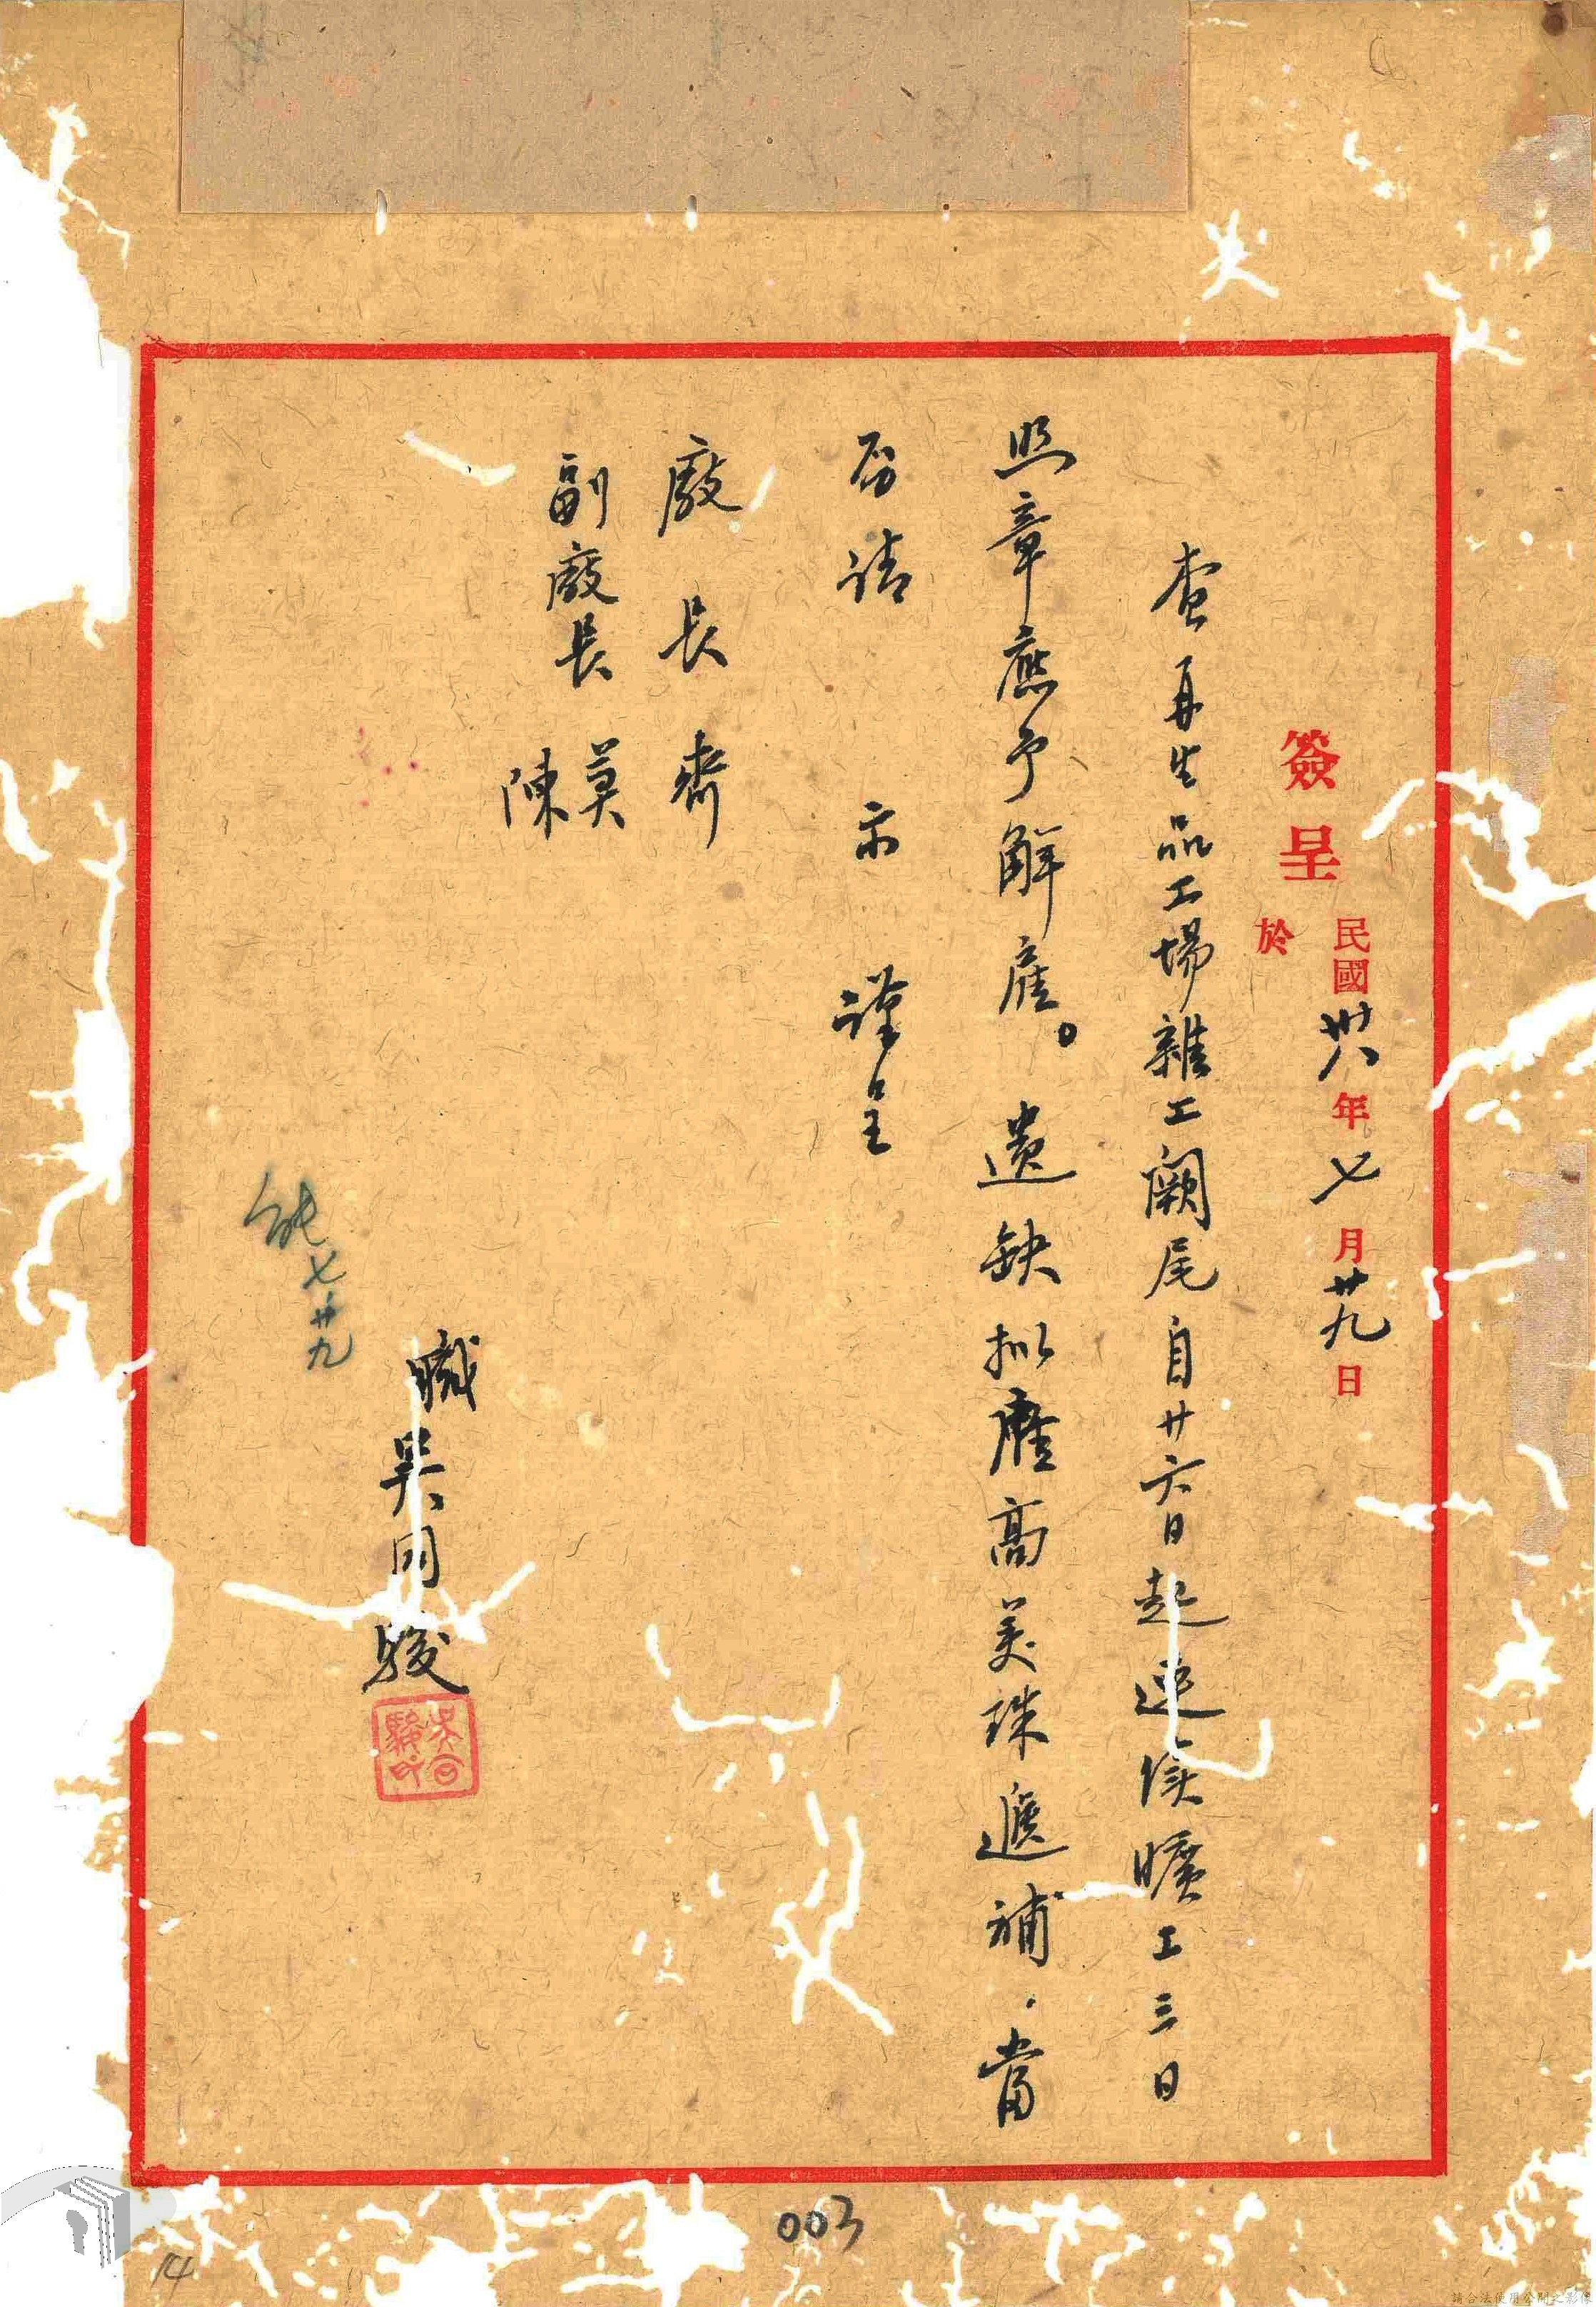 簽呈
於
民國卅八年七月廿九日
查再生品工場雜工闕尾自廿六日起連續曠工三日
照章應予解雇。遺缺擬雇高美珠遞補.當
否請 示 謹呈
廠長齊
副廠長莫
陳
職吳同駿
七廿九
003
14
請合法使用公開之影像